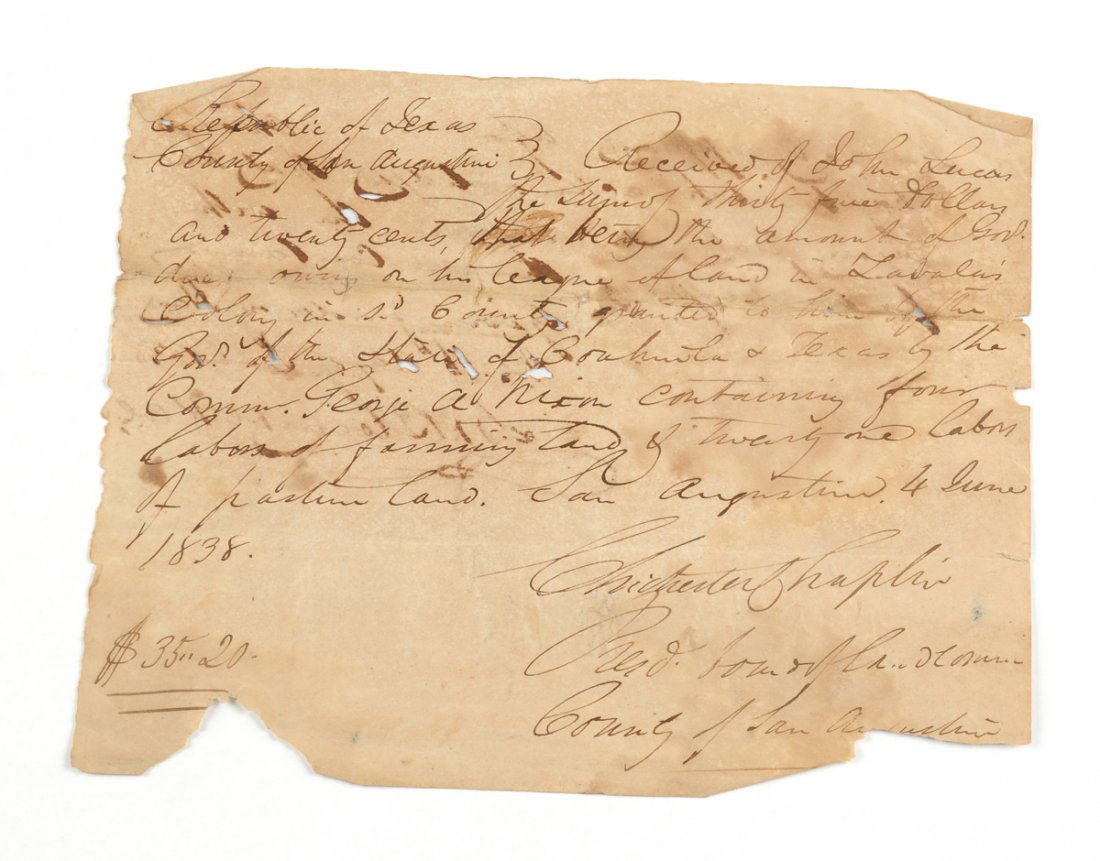 Republic of Texas
County of San Augustine } Received of John Lucas
the sum of thirty five Dollars
and twenty cents, that being the amount of Govt.
dues owing on his league of land in Zavala's
Colony in sd County granted to him by the
Govt. of the State of Coahuila & Texas by the
Comm. George A Nixon containing four
labors of farming land & twenty one labors
of pasture land. San Augustine. 4 June
1838.
Chichester Chaplin
$ 35.. 20.
Presd. board of Land Comm
County of San Augustin